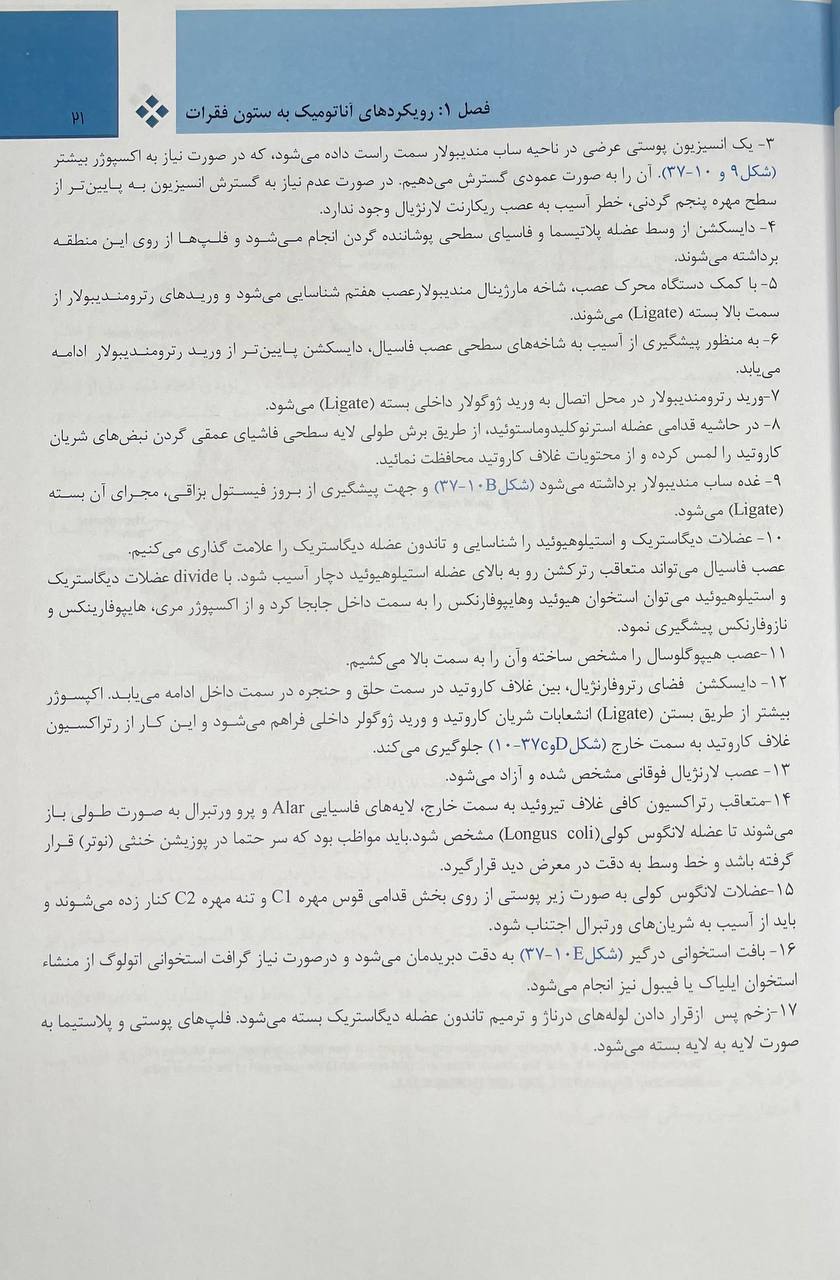 فصل ۱: رویکردهای آناتومیک به ستون فقرات
۲۱
۳- یک انسیزیون پوستی عرضی در ناحیه ساب مندیبولار سمت راست داده می‌شود، که در صورت نیاز به اکسپوژر بیشتر
(شکل۹ و ۱۰-۳۷). آن را به صورت عمودی گسترش می‌دهیم. در صورت عدم نیاز به گسترش انسیزیون به پایین‌تر از
سطح مهره پنجم گردنی، خطر آسیب به عصب ریکارنت لارنژیال وجود ندارد.
۴- دایسکشن از وسط عضله پلاتیسما و فاسیای سطحی پوشاننده گردن انجام می‌شود و فلپ‌ها از روی این منطقه
برداشته می‌شوند.
۵- با کمک دستگاه محرک عصب، شاخه مارژینال مندیبولارعصب هفتم شناسایی می‌شود و وریدهای رترومندیبولار از
سمت بالا بسته (Ligate) می‌شوند.
۶- به منظور پیشگیری از آسیب به شاخه‌های سطحی عصب فاسیال، دایسکشن پایین‌تر از ورید رترومندیبولار ادامه
می‌یابد.
۷-ورید رترومندیبولار در محل اتصال به ورید ژوگولار داخلی بسته (Ligate) می‌شود.
۸- در حاشیه قدامی عضله استرنوکلیدوماستوئید، از طریق برش طولی لایه سطحی فاشیای عمقی گردن نبض‌های شریان
کاروتید را لمس کرده و از محتویات غلاف کاروتید محافظت نمائید.
۹- غده ساب مندیبولار برداشته می‌شود (شکل۱۰B-۳۷) و جهت پیشگیری از بروز فیستول بزاقی، مجرای آن بسته
(Ligate) می‌شود.
۱۰- عضلات دیگاستریک و استیلوهیوئید را شناسایی و تاندون عضله دیگاستریک را علامت گذاری می‌کنیم.
عصب فاسیال می‌تواند متعاقب رترکشن رو به بالای عضله استیلوهیوئید دچار آسیب شود. با divide عضلات دیگاستریک
و استیلوهیوئید می‌توان استخوان هیوئید وهایپوفارنکس را به سمت داخل جابجا کرد و از اکسپوژر مری، هایپوفارینکس و
نازوفارنکس پیشگیری نمود.
۱۱-عصب هیپوگلوسال را مشخص ساخته وآن را به سمت بالا می‌کشیم.
۱۲- دایسکشن فضای رتروفارنژیال، بین غلاف کاروتید در سمت حلق و حنجره در سمت داخل ادامه می‌یابد. اکپسوژر
بیشتر از طریق بستن (Ligate) انشعابات شریان کاروتید و ورید ژوگولر داخلی فراهم می‌شود و این کار از رتراکسیون
غلاف کاروتید به سمت خارج (شکلDو۳۷c-۱۰) جلوگیری می‌کند.
۱۳- عصب لارنژیال فوقانی مشخص شده و آزاد می‌شود.
۱۴-متعاقب رتراکسیون کافی غلاف تیروئید به سمت خارج، لایه‌های فاسیایی Alar و پرو ورتبرال به صورت طولی باز
می‌شوند تا عضله لانگوس کولی(Longus coli) مشخص شود.باید مواظب بود که سر حتما در پوزیشن خنثی (نوتر) قرار
گرفته باشد و خط وسط به دقت در معرض دید قرارگیرد.
۱۵-عضلات لانگوس کولی به صورت زیر پوستی از روی بخش قدامی قوس مهره C1 و تنه مهره C2 کنار زده می‌شوند و
باید از آسیب به شریان‌های ورتبرال اجتناب شود.
۱۶- بافت استخوانی درگیر (شکل۱۰E-۳۷) به دقت دبریدمان می‌شود و درصورت نیاز گرافت استخوانی اتولوگ از منشاء
استخوان ایلیاک یا فیبول نیز انجام می‌شود.
۱۷-زخم پس ازقرار دادن لوله‌های درناژ و ترمیم تاندون عضله دیگاستریک بسته می‌شود. فلپ‌های پوستی و پلاستیما به
صورت لایه به لایه بسته می‌شود.